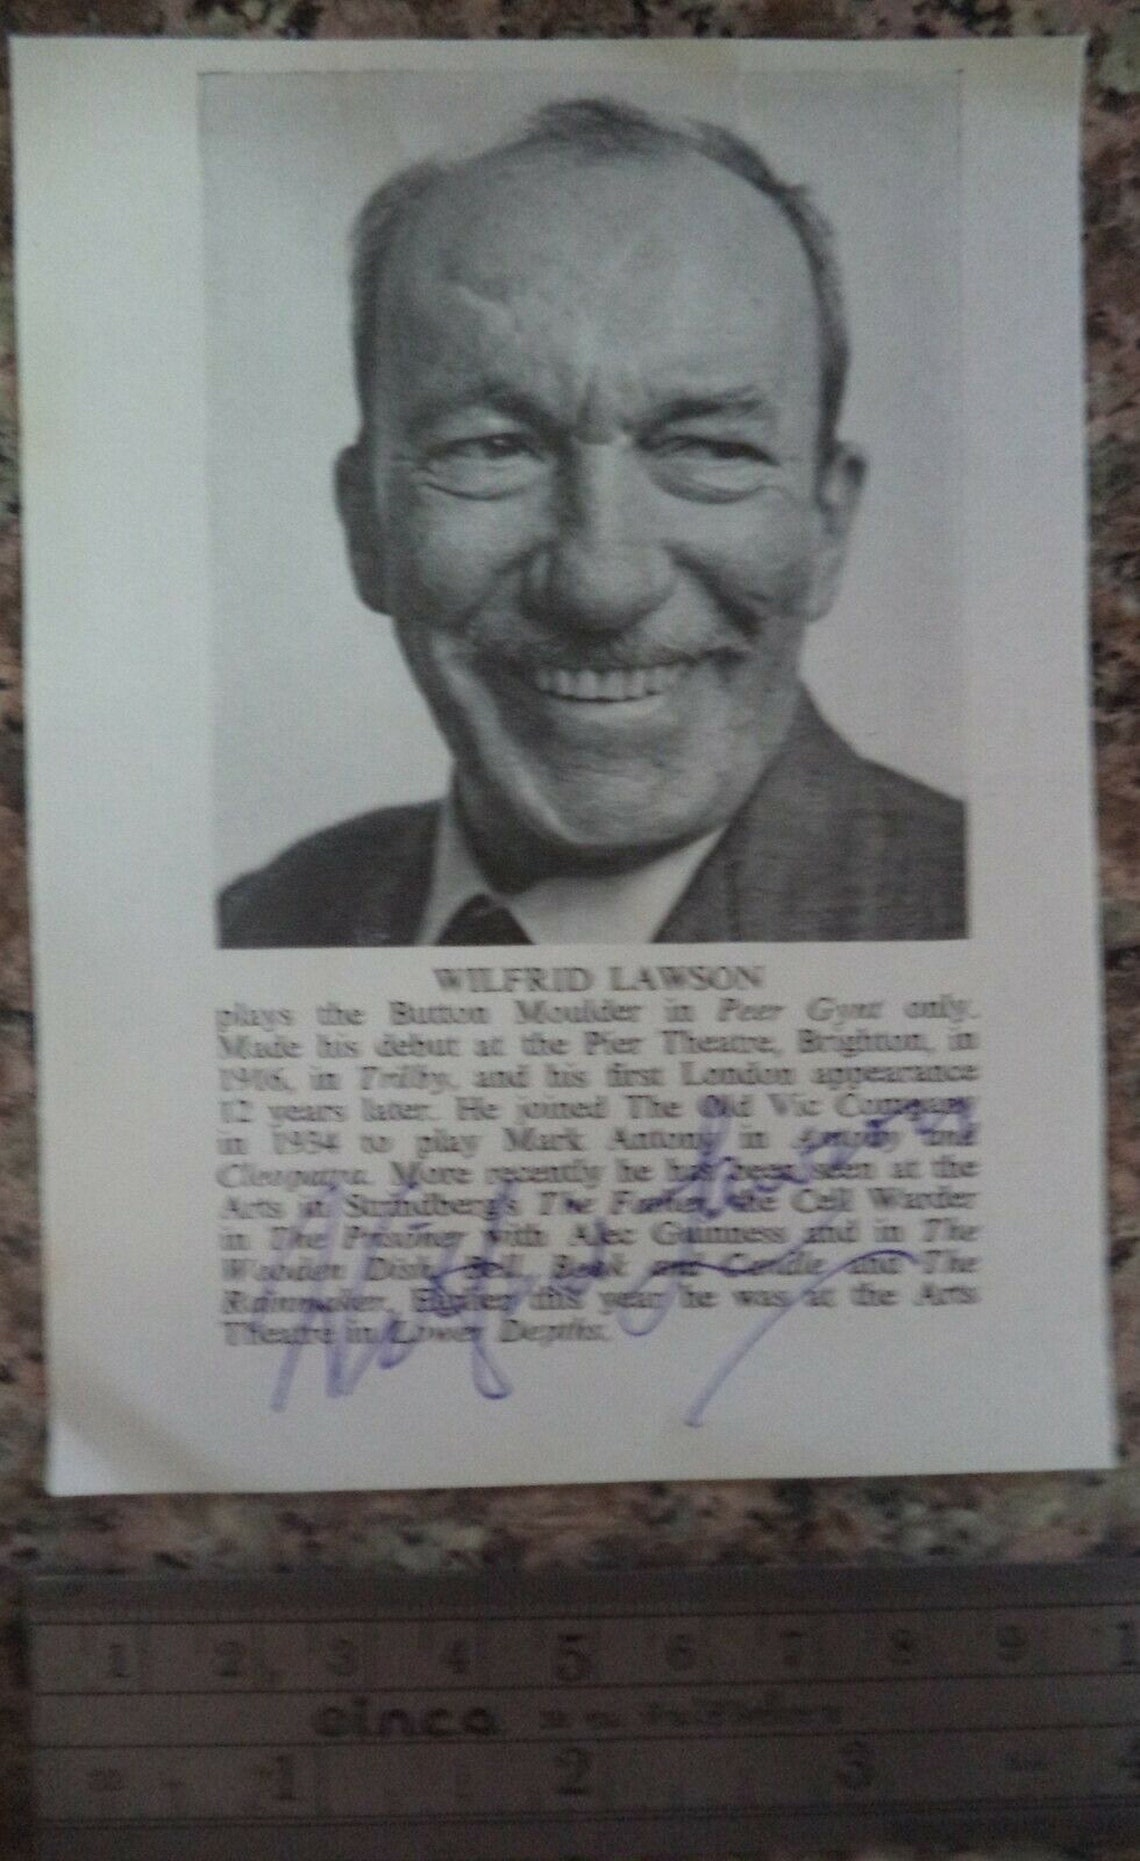 WILFRID LAWSON
plays the Button Moulder in Peer Gynt only.
Made his debut at the Pier Theatre, Brighton, in
1916, in Trilby, and his first London appearance
12 years later. He joined The Old Vic Company
in 1934 to play Mark Antony in Antony and
Cleopatra. More recently he has been seen at the
Arts in Strindberg's The Father, the Cell Warder
in The Prisoner with Alec Guinness and in The
Wooden Dish, Bell, Book and Candle and The
Rainmaker. Earlier this year he was at the Arts
Theatre in Lower Depths.
Wilfrid Lawson
1 2 3 4 5 6 7 8 9 1
cinco
1 2 3